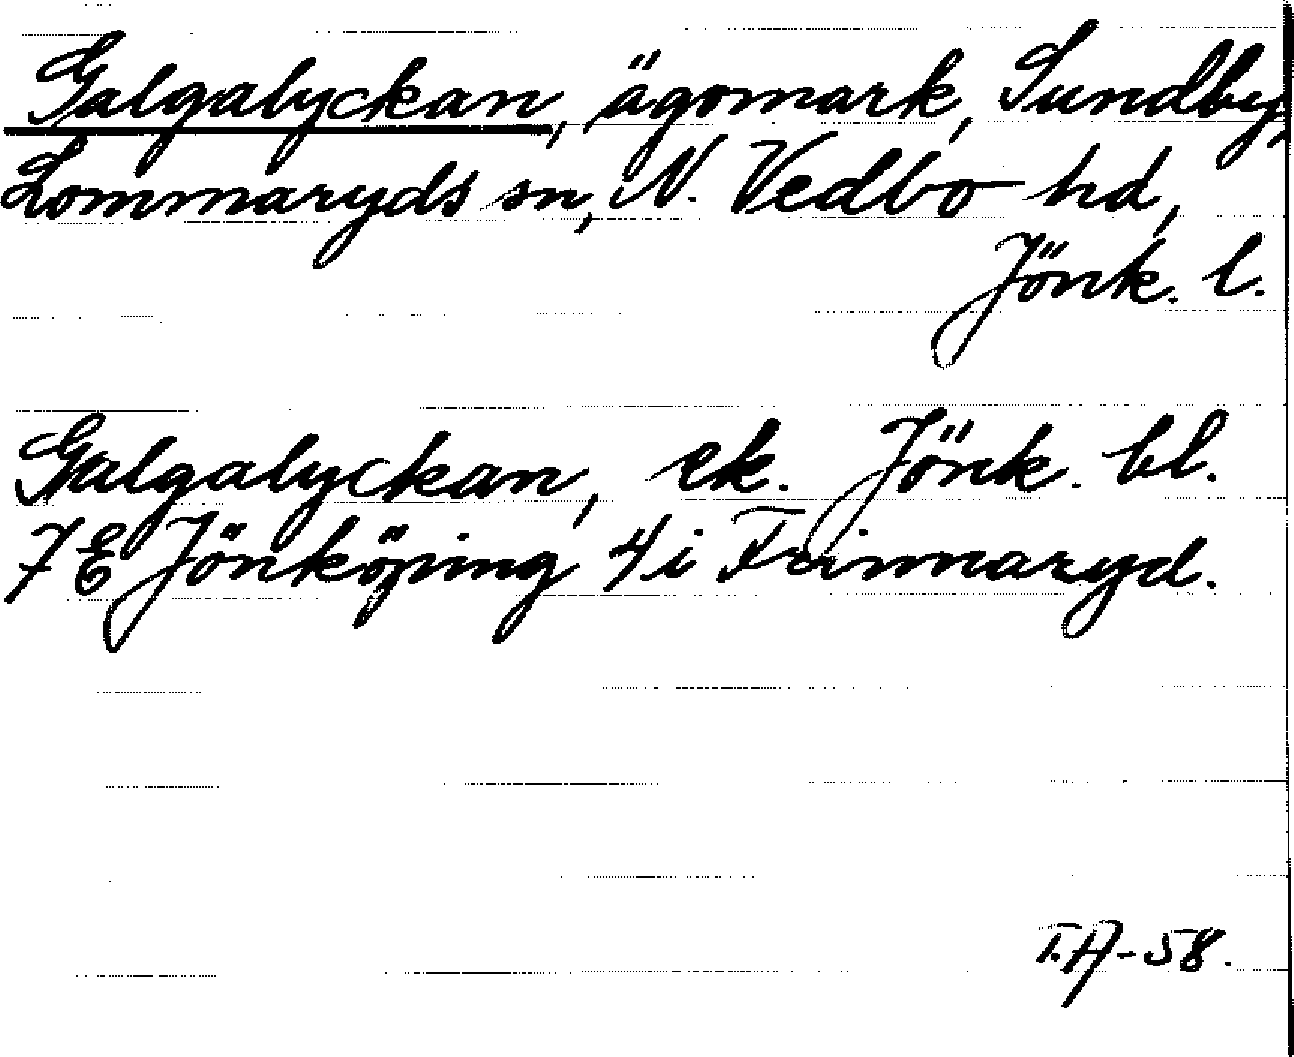 Galgalyckan, ägomark, Sundby,
Lommaryds sn, N. Vedbo hd,
Jönk. l.
Galgalyckan, ek. Jönk. bl.
7 E Jönköping 4 i Frinnaryd.
T.A-58.